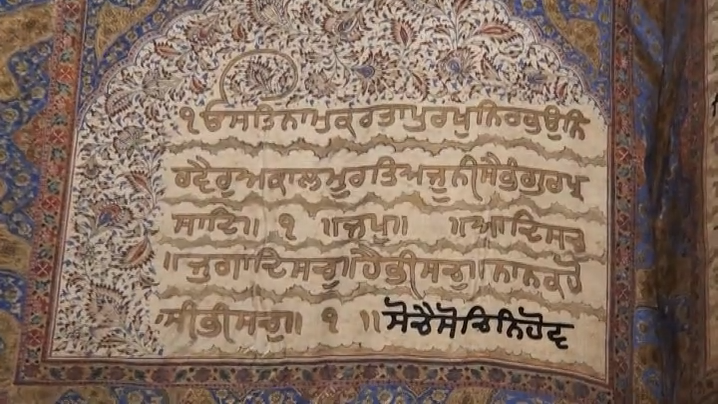 ੴਸਤਿਨਾਮੁਕਰਤਾਪੁਰਖੁਨਿਰਭਉਨਿ
ਰਵੈਰੁਅਕਾਲਮੂਰਤਿਅਜੂਨੀਸੈਭੰਗੁਰਪ੍ਰ
ਸਾਦਿ॥ ੧ ॥ਜਪੁ॥ ॥ਆਦਿਸਚੁ
॥ਜੁਗਾਦਿਸਚੁ॥ਹੈਭੀਸਚੁ॥ਨਾਨਕਹੋ
ਸੀਭੀਸਚੁ॥ ੧ ॥ਸੋਚੈਸੋਚਿਨਹੋਵ